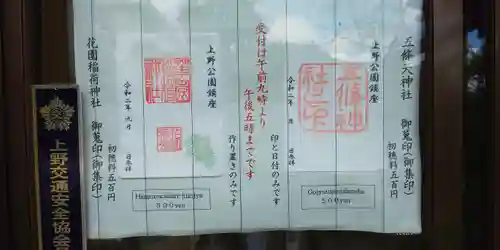 五條天神社
御蒐印(御集印)
初穂料五百円
上野公園鎮座
令和二年 月 日参拝
五條神社之印
Gojyotennjinnsha
500yen
受付は午前九時より
午後五時までです
印と日付のみです
作り置きのみです
上野公園鎮座
令和二年 九月 日参拝
Hanazonoinari jinnjya
500yen
花園稲荷神社
御蒐印(御集印)
初穂料五百円
上野交通安全協会